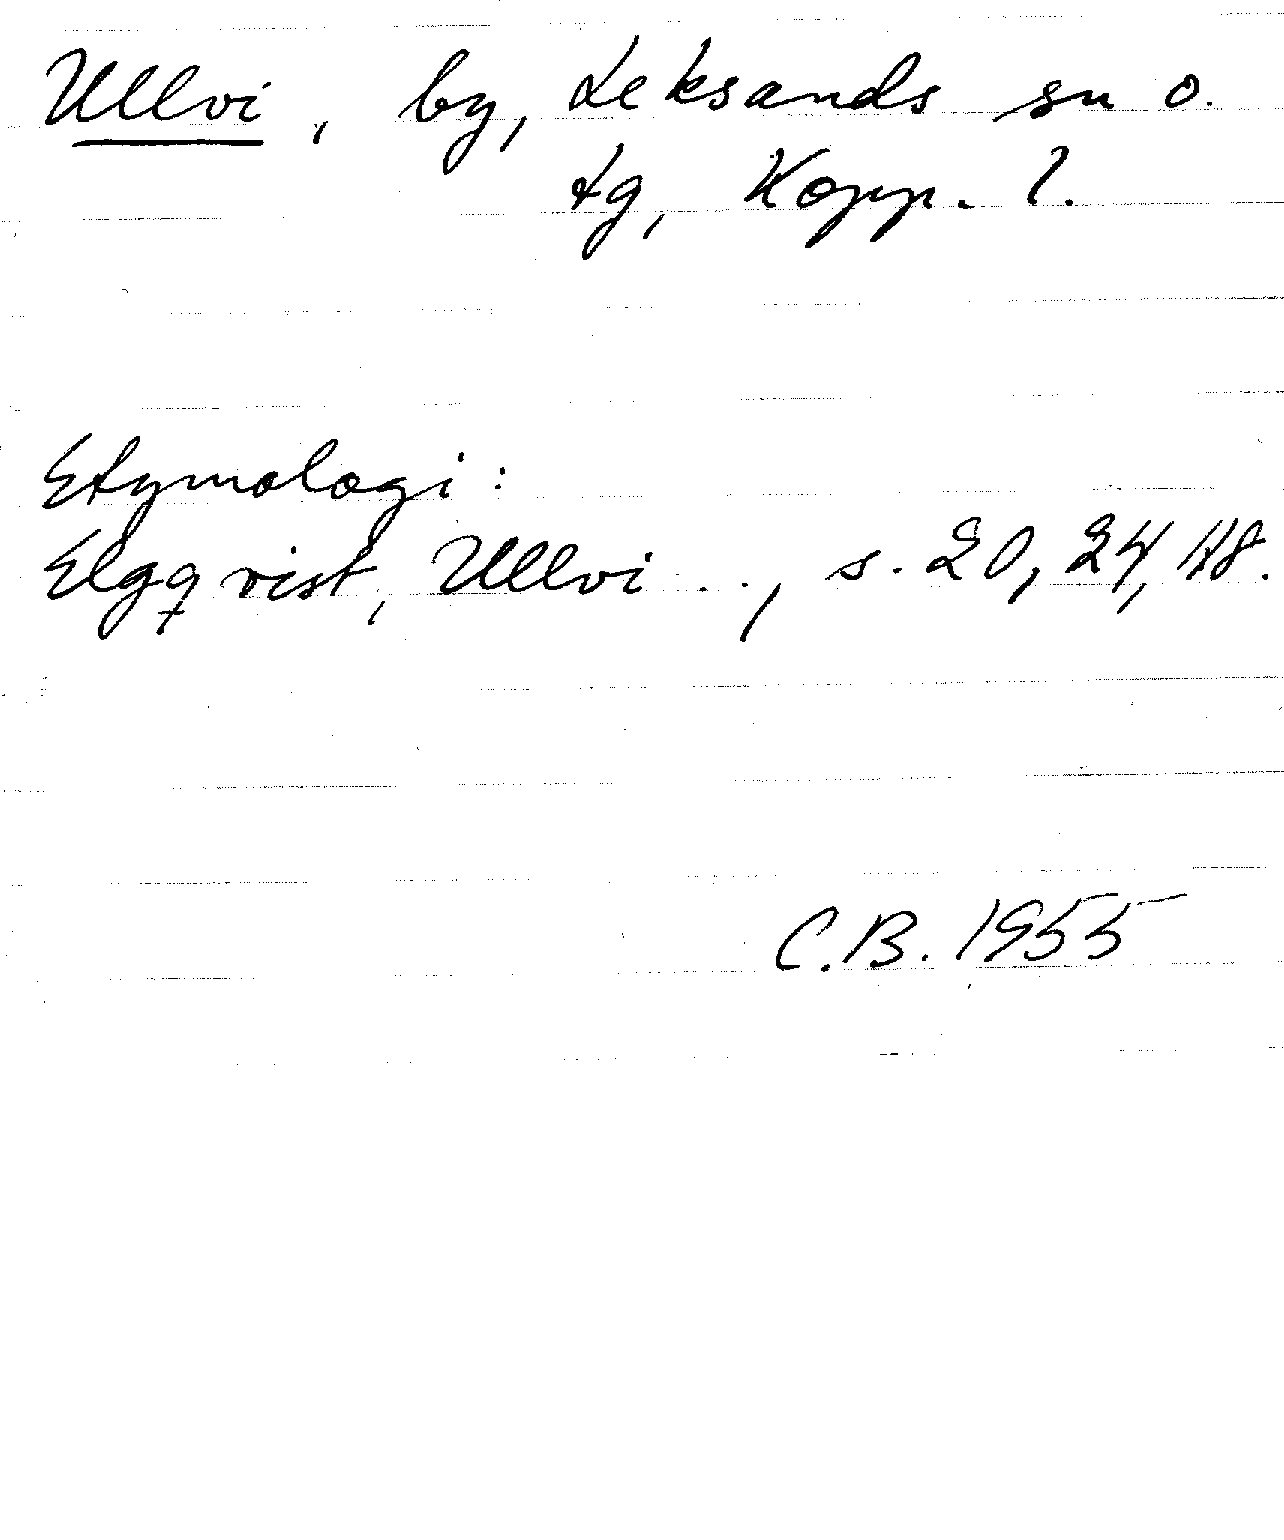 Ullvi, by, Leksands sn o.
tg, Kopp. l.
Etymologi:
Elgqvist, Ullvi . . , s. 20, 24, 48.
C.B. 1955